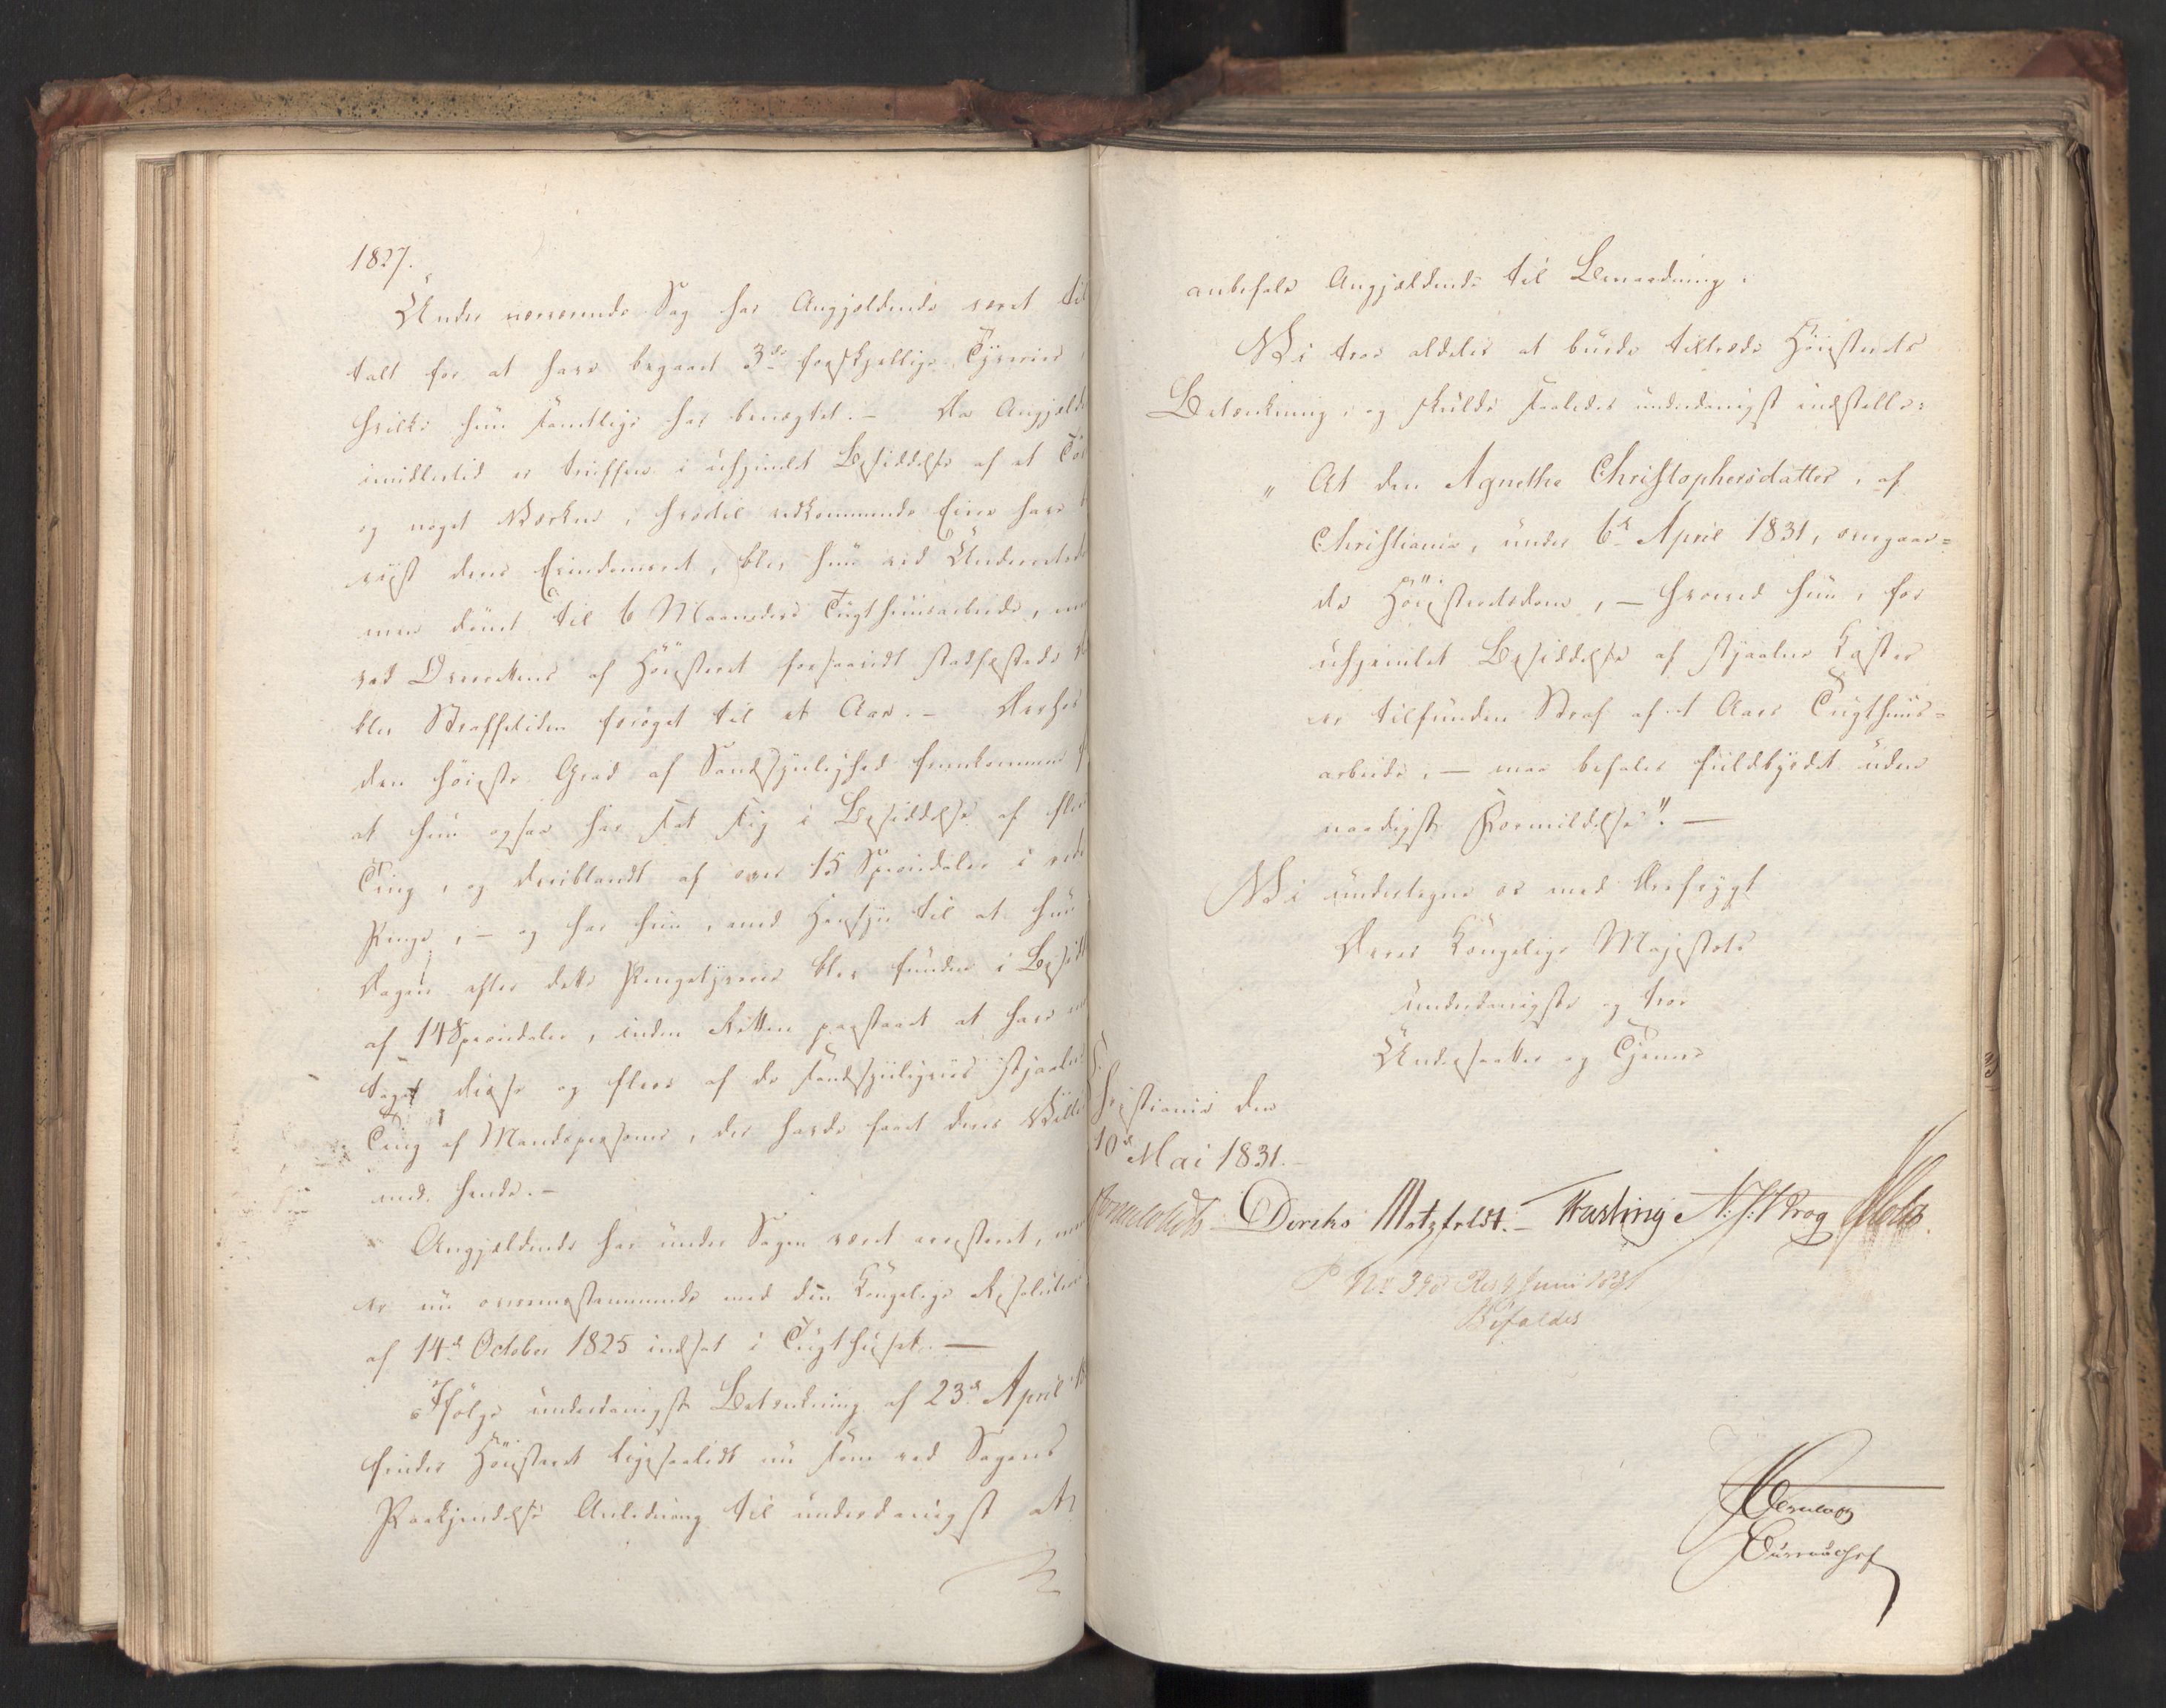 1827.
Under nærværende Sag har Angjældende været til
talt for at have begaaet 3de forskjellige Tyverier,
hvilke hun samtlige har benægtet. – Da Angjæld
imidlertid er truffen i uhjemlet Besiddelse af et
og noget , hvortil vedkommende Eier have
viist deres Eiendomsret, blev hun ved Underrets
men dömt til 6 Maaneders Tugthuusarbeide, men
ved Overrettens af Höiesteret forsaavidt stadfæstede
blev Straffetiden foröget til et Aar. – Derhos
den höieste Grad af Sandsynlighed fremkommen
at hun ogsaa har sat sig i Besiddelse af flere
Ting, og deriblandt af over 15 Speciedaler i rede
Penge, – og har hun, med Hensyn til at hun
Dagen efter dette Pengetyverie blev funden i Besid
af 14 Speciedaler, inden Retten paastaaet at have
taget disse og flere af de sandsynligviis stjaalne
Ting af Mandspersoner, der havde havt deres Villie
med hende. –
Angjældende har under Sagen været arresteret, men
er nu overeensstemmende med den Kongelige Resolution
af 14de October 1825 indsat i Tugthuset. –
Ifölge underdanigst Betænkning af 23de April
finder Höiesteret ligesaalidt nu som ved Sagens
Paakjendelse Anledning til underdanigst at
anbefale Angjældende til Benaadning.
Vi troe aldeles at burde tiltræde Höiesterets
Betænkning, og skulde saaledes underdanigst indstille:
„At den Agnethe Christophersdatter, af
Christiania, under 6te April 1831, overgaae=
de Höiesteretsdom, – hvorved hun, for
uhjemlet Besiddelse af stjaalne Koster
er tilfunden Straf af 1 Aars Tugthuus=
arbeide, – maa befales fuldbyrdet uden
naadigst Formildelse". –
Vi undertegne os med Ærefrygt
Deres Kongelige Majestæts
underdanigste og troe
Undersaatter og Tjenere
Christiania den
10de Mai 1831. –
Diriks Motzfeldt. – Fasting N. J. Krog
P No 390 Res 9 Juni 1831
Bifaldes